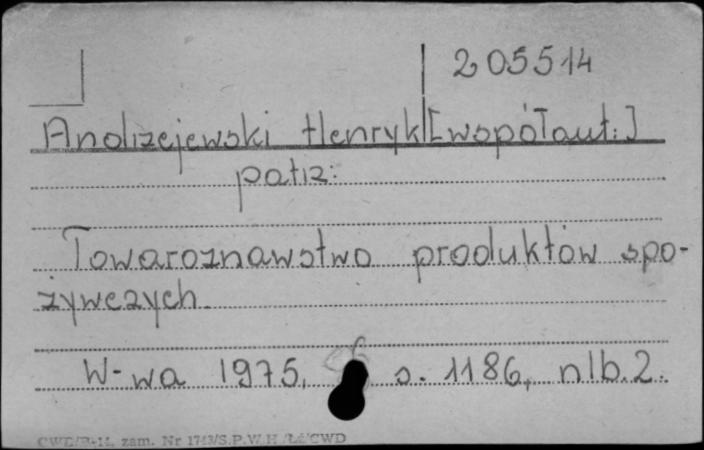 205514
Andrzejewski Henryk [współaut.]
patrz:
Towaroznawstwo produktów spo-
żywczych.
W-wa 1975, s. 1186, nlb. 2.
zam. Nr